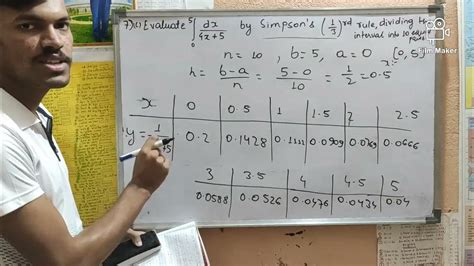 7) Evaluate ∫₀⁵ dx/4x+5 by Simpson's (1/3)rd rule, dividing
interval into 10 equal
parts
n = 10 , b = 5, a = 0 [0, 5]
h = b-a/n = 5-0/10 = 1/2 = 0.5
x 0 0.5 1 1.5 2 2.5
y = 1 0.2 0.1428 0.1111 0.0909 0.0769 0.0666
3 3.5 4 4.5 5
0.0588 0.0526 0.0476 0.0434 0.04
Film Maker